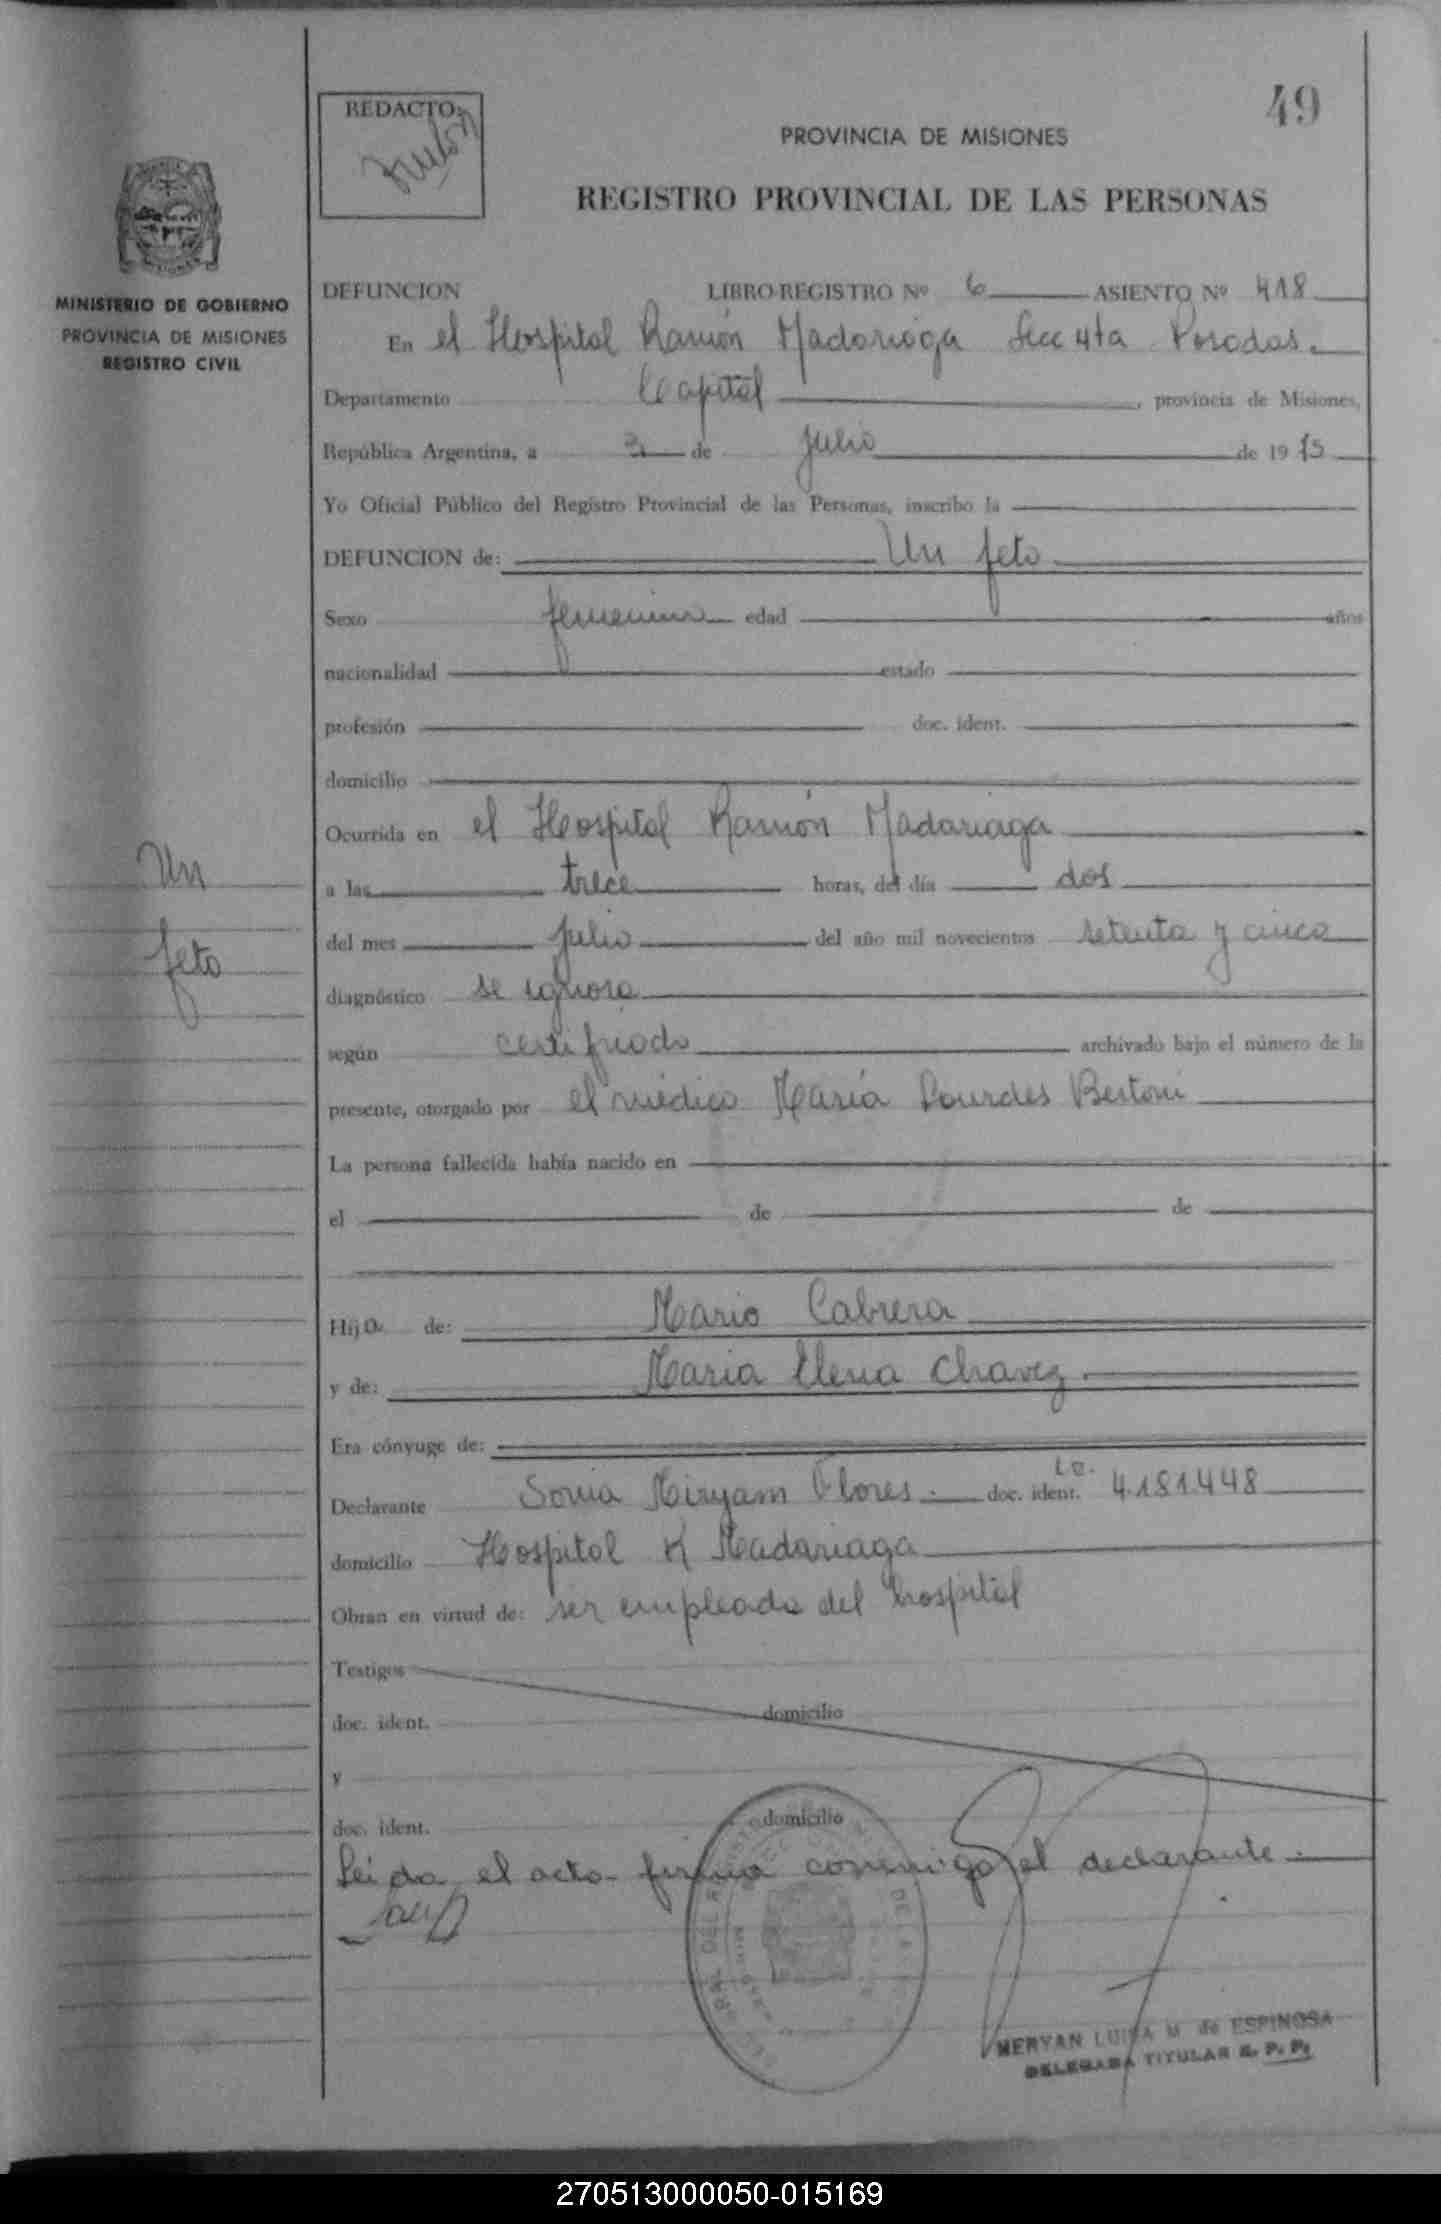 REDACTO:
49
PROVINCIA DE MISIONES
REGISTRO PROVINCIAL DE LAS PERSONAS
MINISTERIO DE GOBIERNO
PROVINCIA DE MISIONES
REGISTRO CIVIL
DEFUNCION LIBRO-REGISTRO Nº 6 ASIENTO Nº 418
En el Hospital Ramón Madariaga Secc 4ta Posadas.
Departamento Capital, provincia de Misiones,
República Argentina, a 3 de julio de 1975
Yo Oficial Público del Registro Provincial de las Personas, inscribo la
DEFUNCION de: Un feto
Sexo femenino edad años
nacionalidad estado
profesión doc. ident.
domicilio
Ocurrida en el Hospital Ramón Madariaga
a las trece horas, del día dos
del mes julio del año mil novecientos setenta y cinco
diagnóstico se ignora
según certificado archivado bajo el número de la
presente, otorgado por el médico María Lourdes Bertoni
La persona fallecida había nacido en
el de de
Un
feto
Hijo de: Mario Cabrera
y de: Maria Elena Chavez
Era cónyuge de:
Declarante Sonia Miryam Flores. doc. ident. L.C. 4.181.448
domicilio Hospital R Madariaga
Obran en virtud de: ser empleada del hospital
Testigos
doc. ident. domicilio
y
doc. ident. domicilio
Leida el acta firma conmigo el declarante.
MERYAN LUISA M de ESPINOSA
DELEGADA TITULAR R. P. P.
270513000050-015169